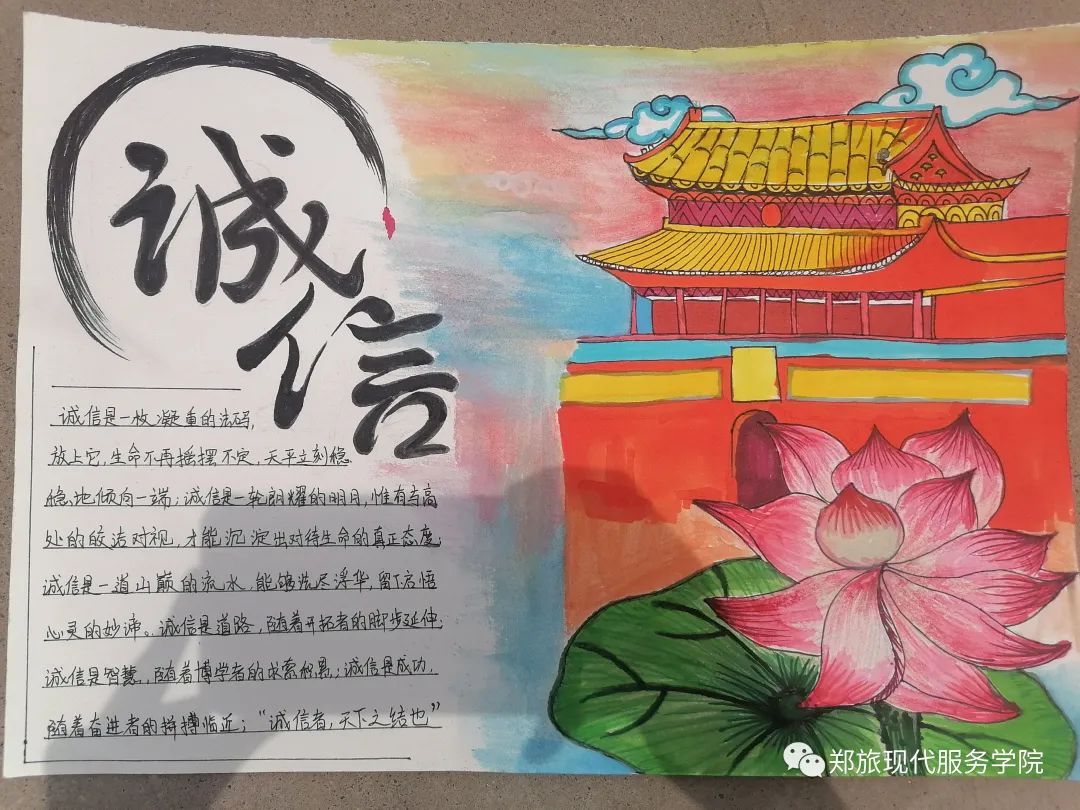 诚信
诚信是一枚凝重的法码,
放上它,生命不再摇摆不定,天平立刻稳
稳地倾向一端;诚信是一轮朗耀的明月,惟有与高
处的皎洁对视,才能沉淀出对待生命的真正态度;
诚信是一道山巅的流水,能够洗尽浮华,留下启悟
心灵的妙谛。诚信是道路,随着开拓者的脚步延伸;
诚信是智慧,随着博学者的求索积累;诚信是成功,
随着奋进者的拼搏临近;“诚信者,天下之结也”
郑旅现代服务学院